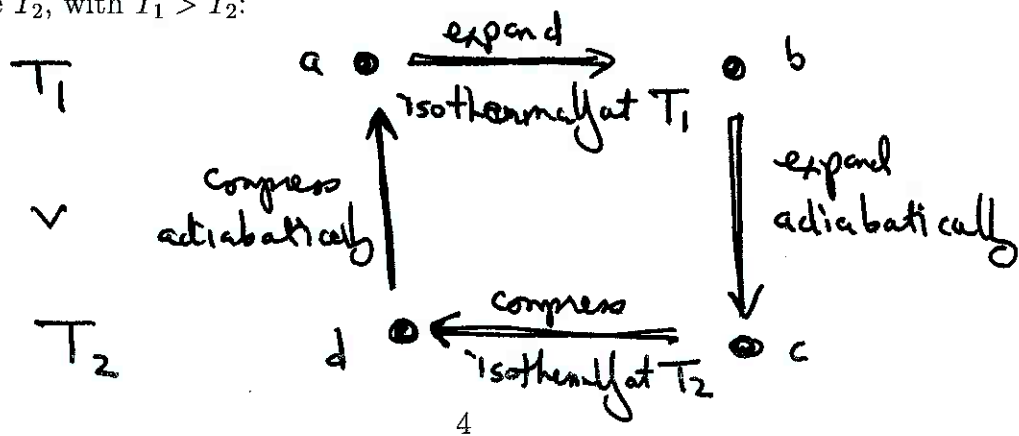 e T₂, with T₁ > T₂:
T₁
a
expand
b
isothermally at T₁
compress
adiabatically
expand
adiabatically
∨
T₂
d
compress
c
isothermally at T₂
4